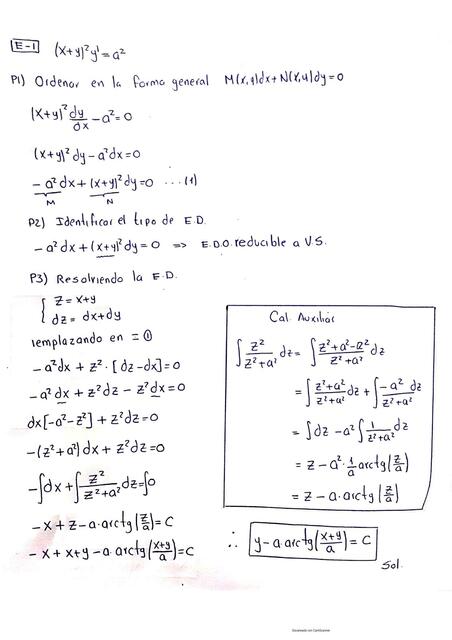 E-1 (x+y)²y' = a²
P1) Ordenar en la forma general M(x,y)dx+N(x,y)dy=0
(x+y)² dy/dx - a² = 0
(x+y)² dy - a² dx = 0
- a² dx + (x+y)² dy = 0 ...(1)
M N
P2) Identificar el tipo de E.D.
- a² dx + (x+y)² dy = 0 => E.D.O. reducible a V.S.
P3) Resolviendo la E.D.
{ z = x+y
dz = dx+dy
remplazando en = ①
- a² dx + z² · [dz - dx] = 0
- a² dx + z² dz - z² dx = 0
dx[-a² - z²] + z² dz = 0
-(z²+a²) dx + z² dz = 0
-∫dx + ∫ z²/(z²+a²) dz = ∫0
- x + z - a·arctg(z/a) = C
- x + x + y - a·arctg((x+y)/a) = C
Cal. Auxiliar
∫ z²/(z²+a²) dz = ∫ (z²+a²-a²)/(z²+a²) dz
= ∫ (z²+a²)/(z²+a²) dz + ∫ -a² dz/(z²+a²)
= ∫dz - a² ∫ 1/(z²+a²) dz
= z - a² · 1/a arctg(z/a)
= z - a·arctg(z/a)
∴ y - a·arctg((x+y)/a) = C
Sol.
Escaneado con CamScanner